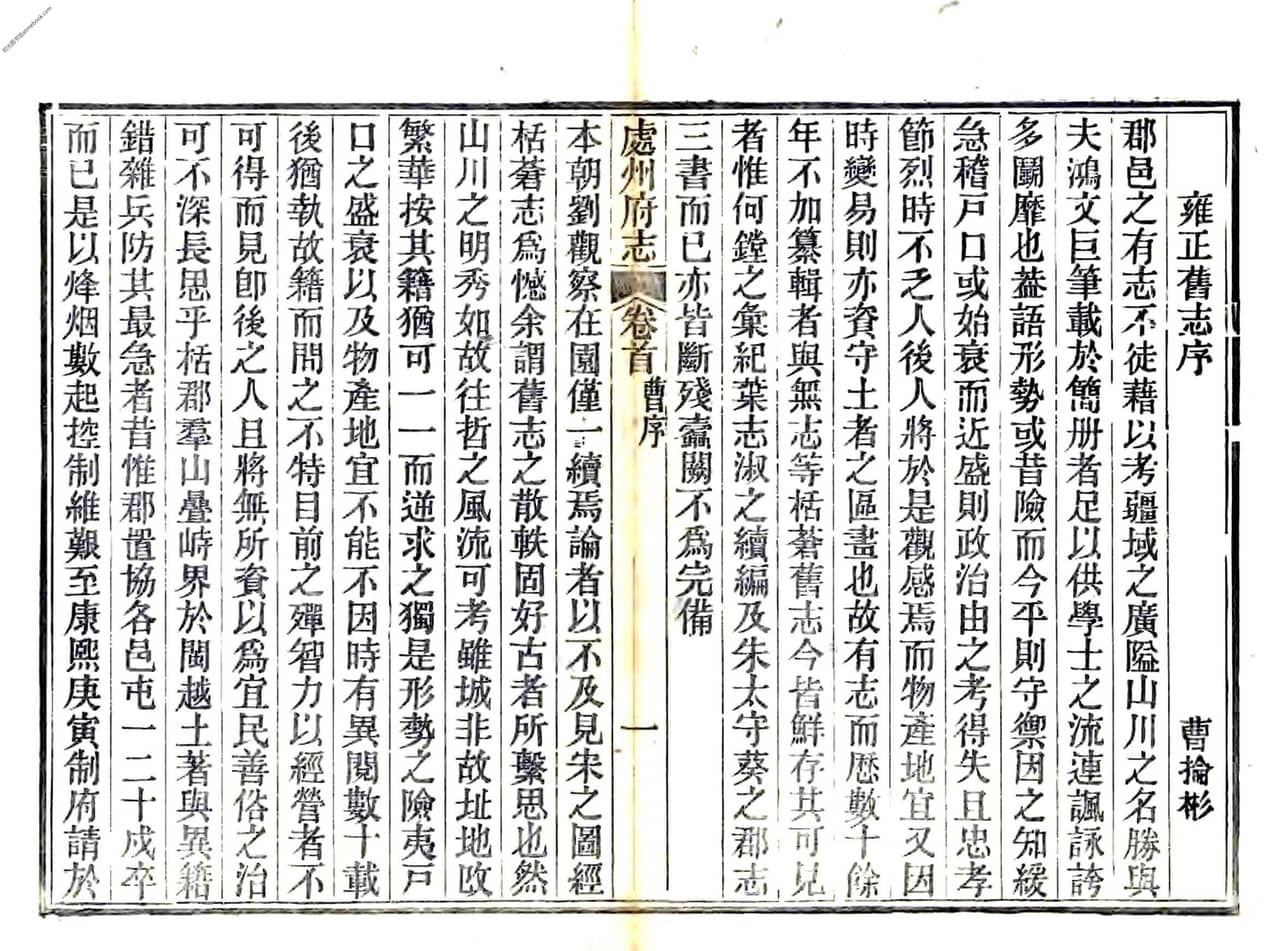 雍正舊志序
曹掄彬
郡邑之有志不徒藉以考疆域之廣隘山川之名勝與
夫鴻文巨筆載於簡册者足以供學士之流連諷詠誇
多鬭靡也葢語形勢或昔險而今平則守禦因之知緩
急稽戸口或始衰而近盛則政治由之考得失且忠孝
節烈時不乏人後人將於是觀感焉而物產地宜又因
時變易則亦資守土者之區畫也故有志而歷數十餘
年不加纂輯者與無志等栝蒼舊志今皆鮮存其可見
者惟何鏜之彙紀葉志淑之續編及朱太守葵之郡志
三書而已亦皆斷殘蠧闕不爲完備
處州府志
卷首
曹序
一
本朝劉觀察在園僅一續焉論者以不及見宋之圖經
栝蒼志爲憾余謂舊志之散軼固好古者所繫思也然
山川之明秀如故往哲之風流可考雖城非故址地攺
繁華按其籍猶可一一而逆求之獨是形勢之險夷戸
口之盛衰以及物產地宜不能不因時有異閱數十載
後猶執故籍而問之不特目前之殫智力以經營者不
可得而見卽後之人且將無所資以爲宜民善俗之治
可不深長思乎栝郡羣山疊峙界於閩越土著與異籍
錯雜兵防其最急者昔惟郡置協各邑屯一二十戍卒
而已是以烽烟數起控制維艱至康熙庚寅制府請於